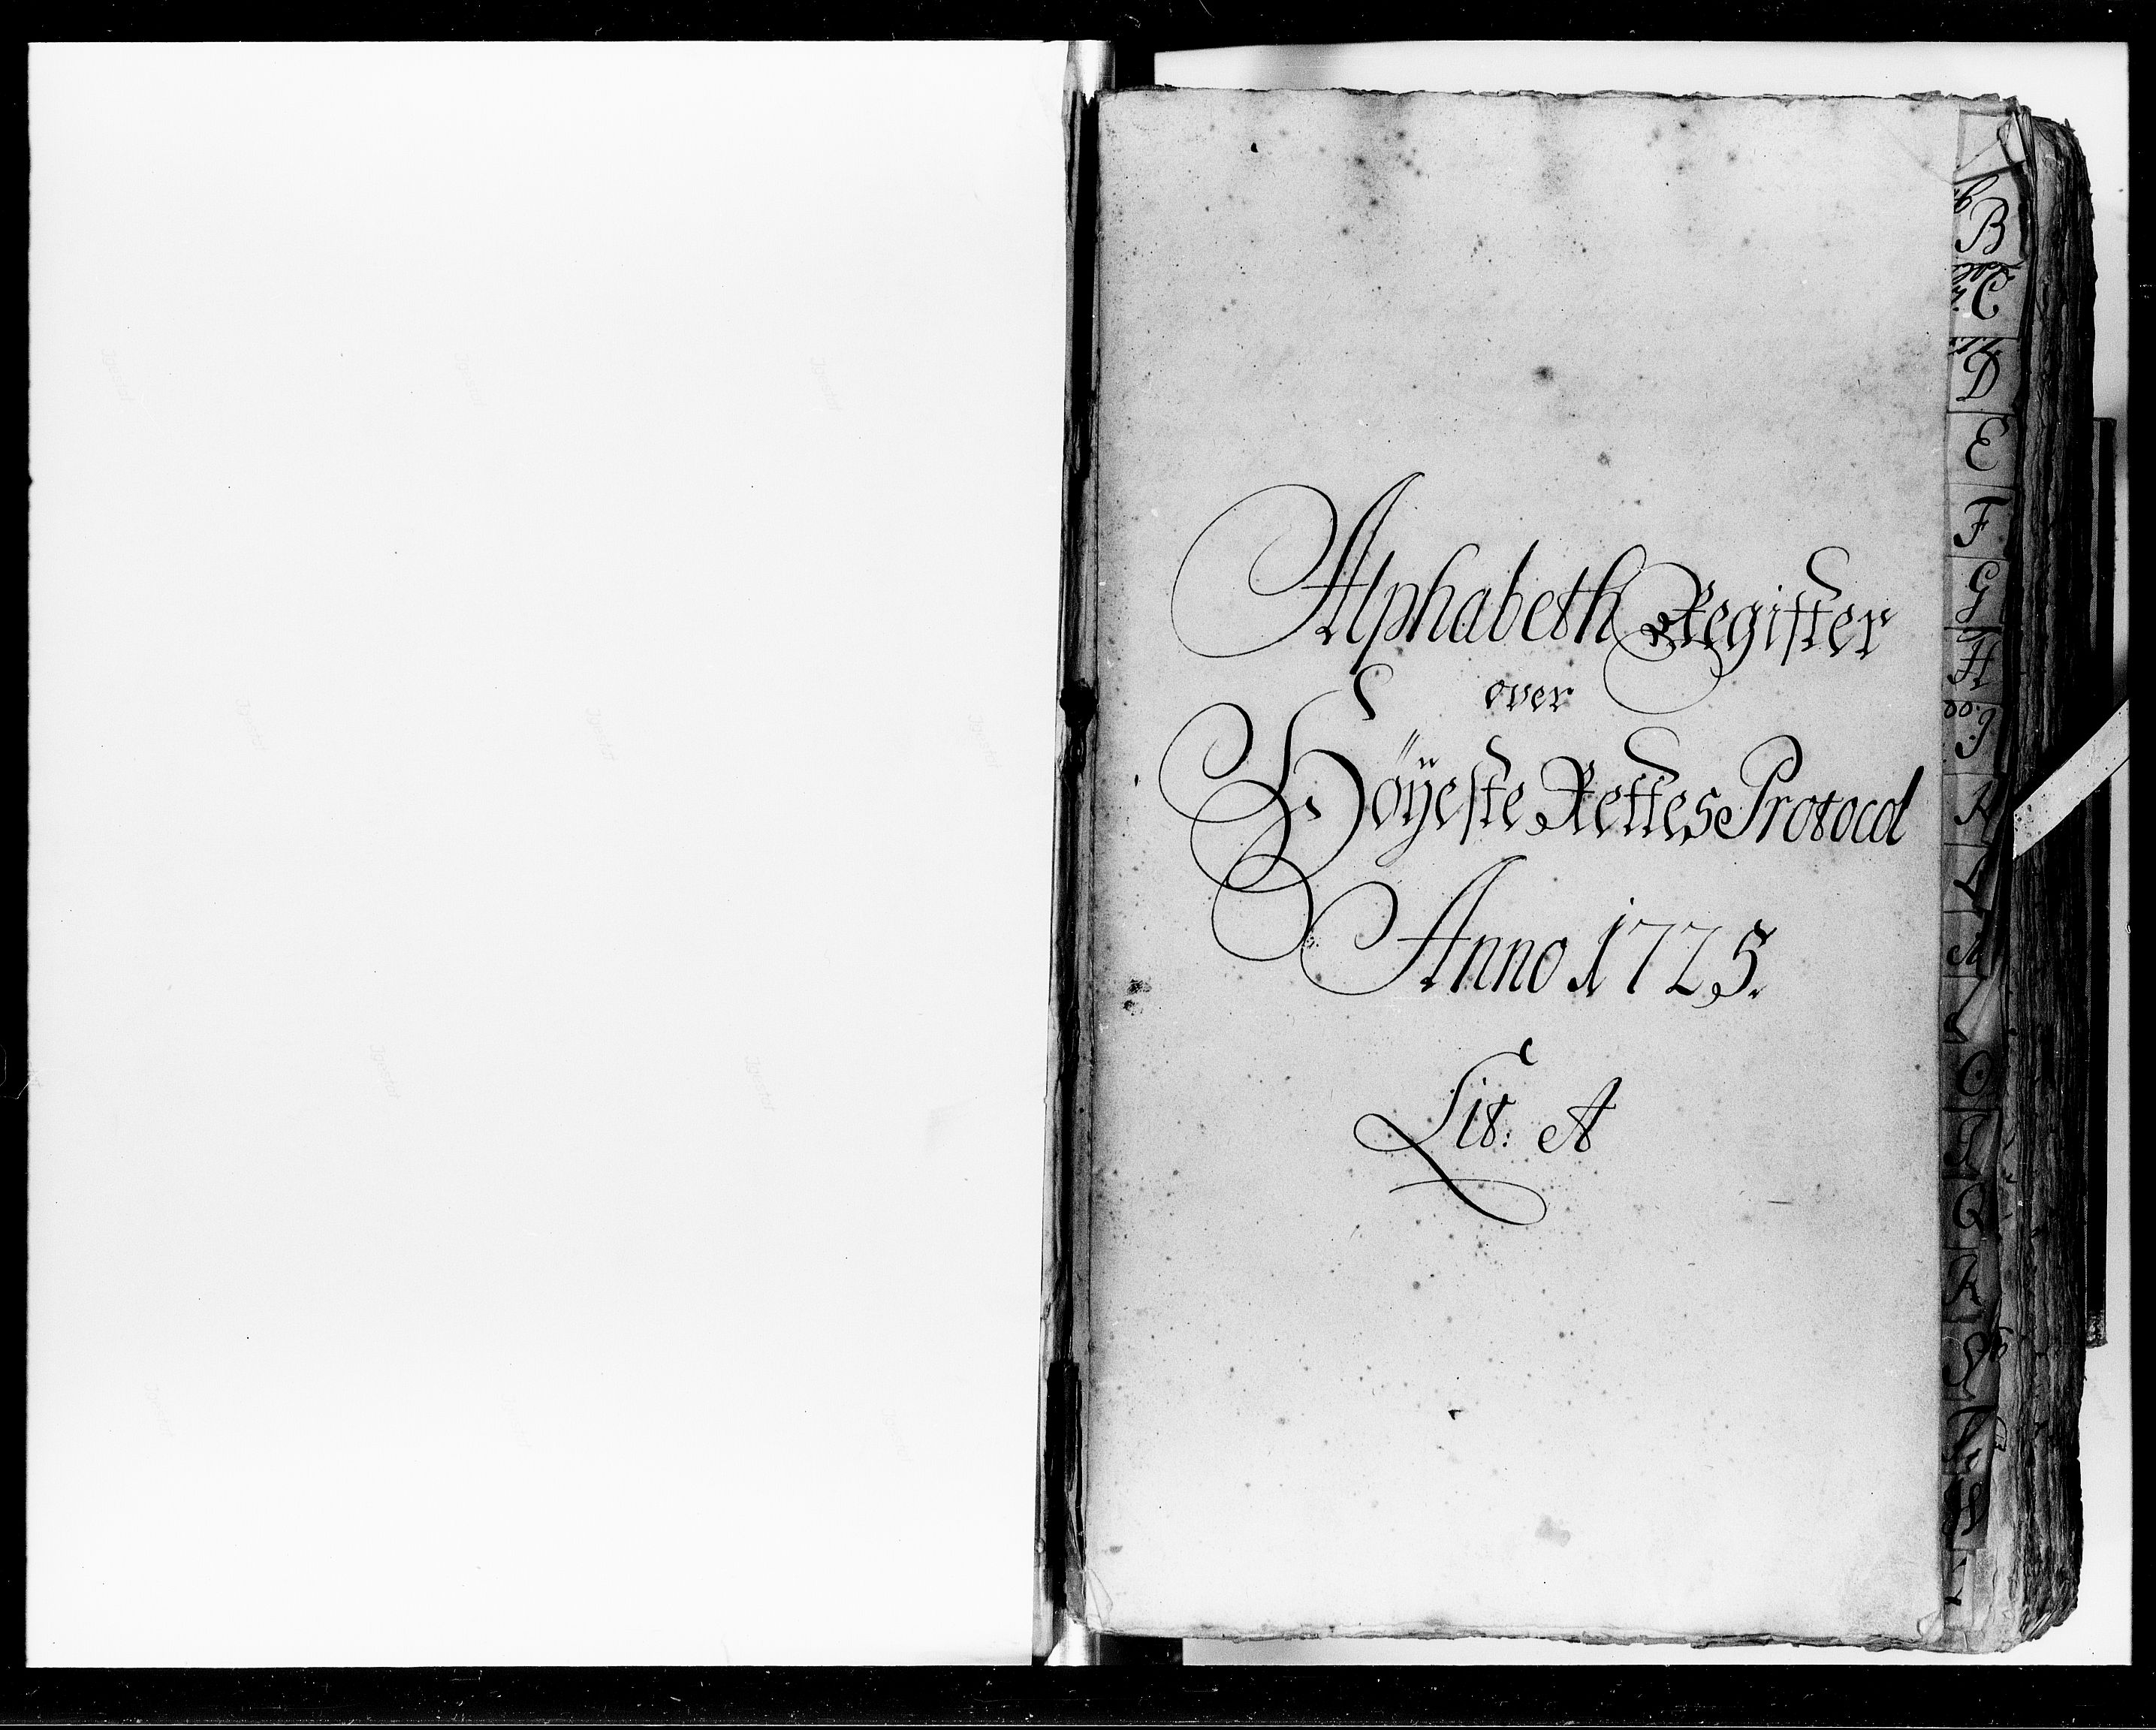 Alphabeth Register
over
Höÿeste Rettes Protocol
Anno 1725.
Lit: A
B
C
D
E
F
G
H
I
K
L
M
N
O
P
Q
R
S